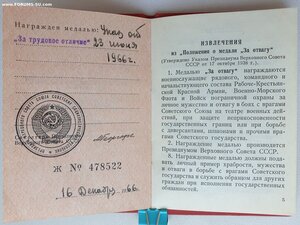 www.FORUMS-SU.com
Награжден медалью: Указ от
„За трудовое отличие" 23 июня
1966 г.
Ж № 478522
16 Декабря 66 г.
ИЗВЛЕЧЕНИЯ
из „Положения о медали „За отвагу"
(Утверждено Указом Президиума Верховного Совета
СССР от 17 октября 1938 г.)
1. Медалью „За отвагу" награждаются
военнослужащие рядового, командного и
начальствующего состава Рабоче-Крестьян-
ской Красной Армии, Военно-Морского
Флота и Войск пограничной охраны за
личное мужество и отвагу в боях с врагами
Советского Союза на театре военных дей-
ствий, при защите неприкосновенности
государственных границ или при борьбе
с диверсантами, шпионами и прочими врага-
ми Советского государства.
2. Награждение медалью производится
Президиумом Верховного Совета СССР.
3. Награждение медалью должности
личного мужества
и отваги в борьбе с врагами Советского
государства
5